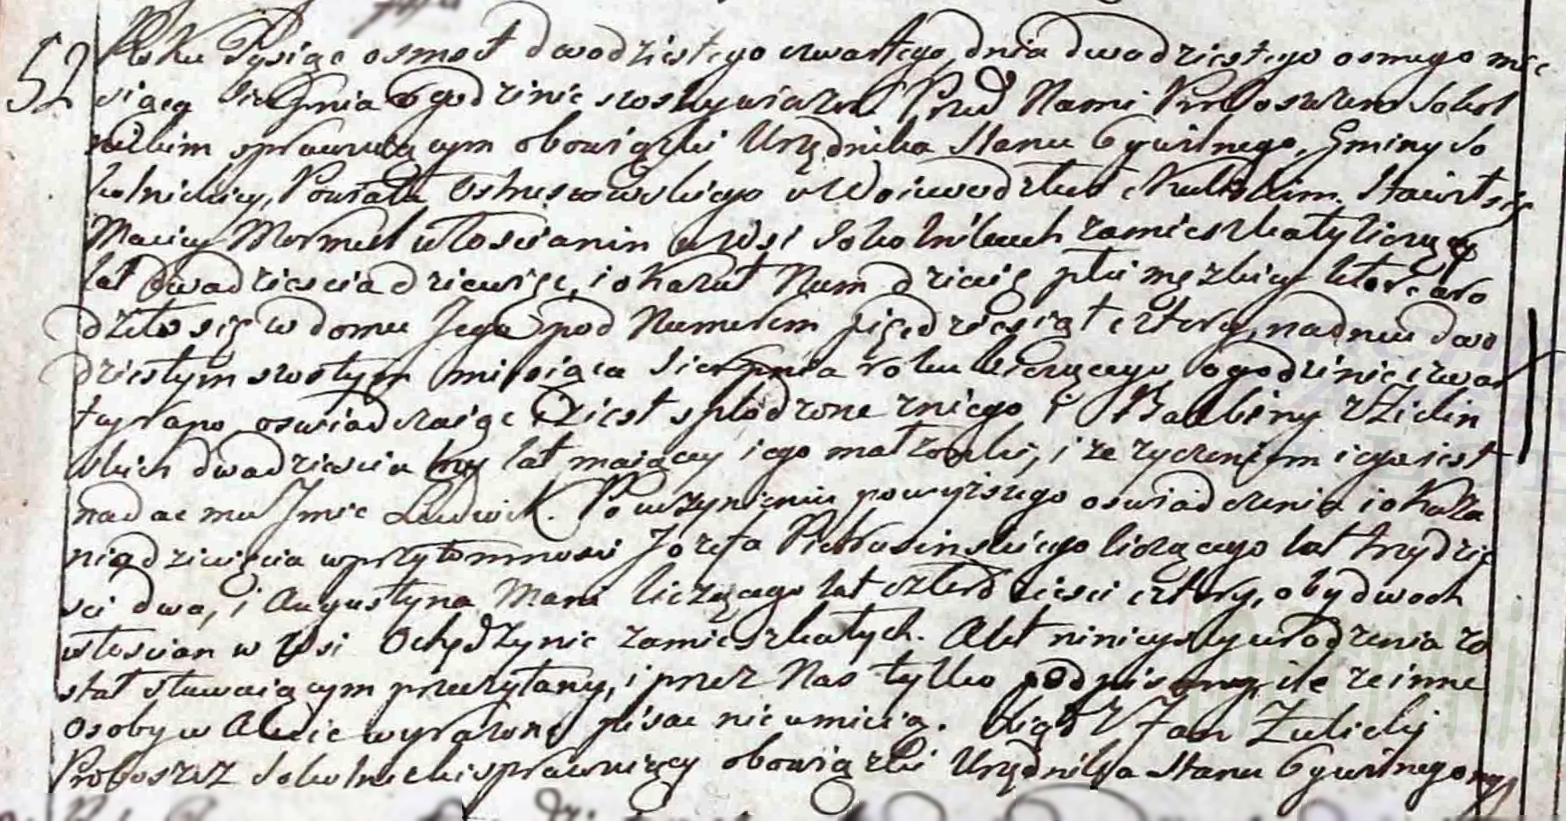 52
Roku Tysiąc osmset dwodziestego czwartego, dnia dwadziestego osmego mie
siąca Sierpnia o godzinie szostey wieczor Przed Nami Proboszczem Sokol
nickim sprawuiącym obowiązki Urzędnika Stanu Cywilnego, Gminy So
kolnickiey, Powiatu Ostrzeszowskiego w Woiewodztwie Kaliskim. Stawił się
Maciey Mormul włoscianin w Wsi Sokolnikach zamieszkały liczący
lat dwadziescia dziewięc, i okazał Nam dziecię płci męzkiey ktore uro
dziło się w domu Jego pod Numerem piędziesiąt cztery, na dniu dwo
dziestym szostym miesiąca Sierpnia roku bieżącego o godzinie czwar
tey rano, oswiadczaiąc iż iest spłodzone z niego i Balbiny z Zielin
skich dwadziescia trzy lat maiącey iego małzonki, i ze zyczeniem iego iest
nadac mu Jmie Ludwik. Po uczynieniu powyższego oswiadczenia i okaza
nia dziecięcia w przytomnosci Jozefa Pietrusinskiego liczącego lat trzydzie
sci dwa, i Augustyna Mani liczącego lat czterdziesci cztery, obydwoch
włoscian w Wsi Ochędzynie zamieszkałych. Akt ninieyszy urodzenia zo
stał stawaiącym przeczytany, i przez Nas tylko podpisany, ile ze inne
osoby w Akcie wyrażone pisac nie umieią. Xiądz Jan Zulicki
Proboszcz Sokolnicki sprawuiący obowiązki Urzędnika Stanu Cywilnego